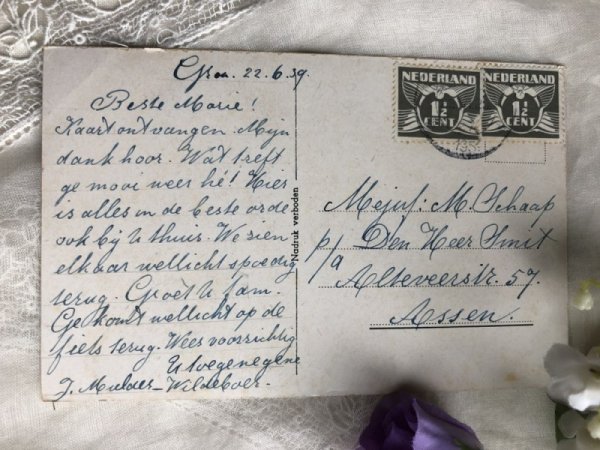 Gron. 22.6.39.
Beste Marie!
Kaart ontvangen. Mijn
dank hoor. Wat treft
ge mooi weer hè! Hier
is alles in de beste orde
ook bij U thuis. We zien
elkaar wellicht spoedig
terug. Groet U fam.
Ge komt wellicht op de
fiets terug. Wees voorzichtig
U toegenegene
J. Mulder-Wildeboer.
Nadruk verboden
NEDERLAND
1½
CENT
NEDERLAND
1½
CENT
Mejuf: M. Schaap
p/a Den Heer Smit
Alteveerstr. 57.
Assen.